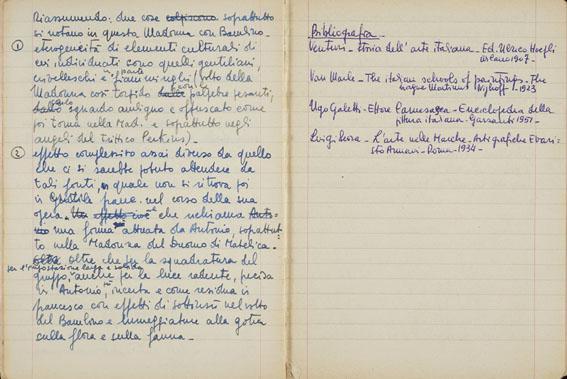 Riassumendo: due cose colpiscono soprattutto
si notano in questa Madonna con Bambino.
① eterogeneità di elementi culturali di
cui individuati sono quelli gentiliani,
(volto della
Madonna così torpido palpebre pesanti,
sguardo allungo e offuscato come
poi torna nella Mad. e soprattutto negli
angeli del trittico Perkins) -
② effetto complessivo assai diverso da quello
che ci si sarebbe potuto attendere da
tali fonti, quale non si ritrova poi
in Gentile nel corso della sua
opera. effetto che richiama
una forma attuata da Antonio, soprattut
to nella Madonna del Duomo di Matelica -
oltre che per la squadratura del
per l'impostazione larga e solida
gruppo, anche per la luce radente, precisa
in Antonio, incerta e come residua in
Francesco, con effetti di sottinsù nel volto
del Bambino e lumeggiature alla gotica
sulla flora e sulla fauna -
Bibliografia
Venturi - Storia dell'arte italiana - Ed. Ulrico Hoepli
Milano 1907 -
Van Marle - The italian schools of painting - The
Hague Martinus Nijhoff - 1923
Ugo Galetti - Ettore Camesasca - Enciclopedia della
pittura italiana - Garzanti 1951 -
Luigi Serra - L'arte nelle Marche - Arti grafiche Evari-
sto Armani - Roma - 1934 -